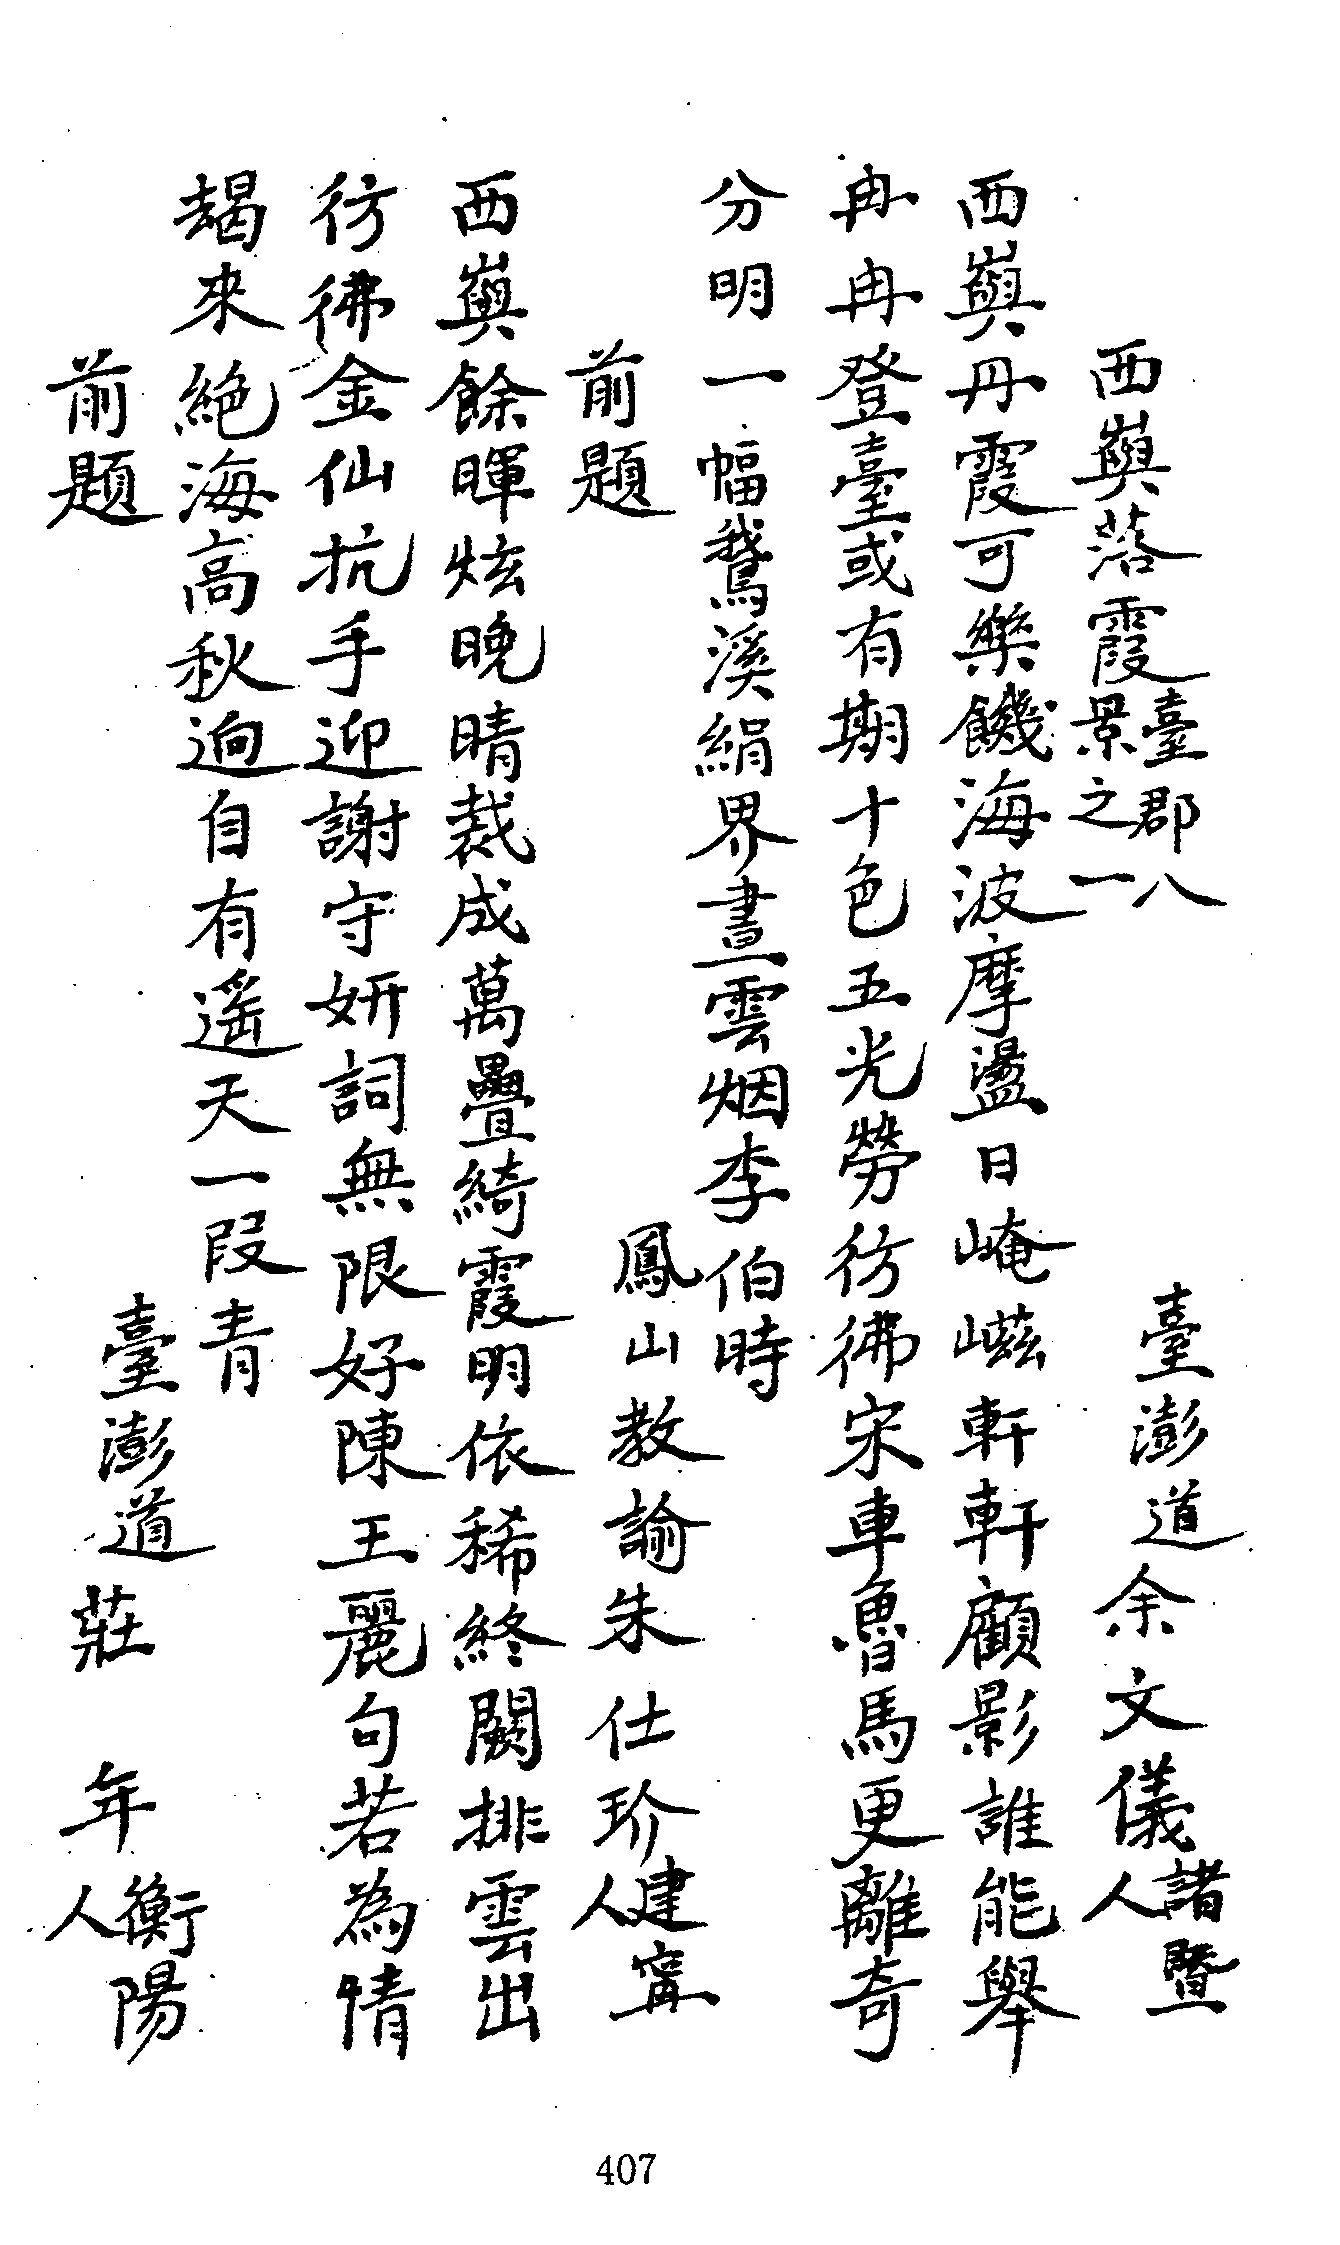 西嶼落霞臺郡八景之一　臺澎道余文儀諸暨人
西嶼丹霞可樂饑海波摩盪日崦嵫軒軒顧影誰能舉
冉冉登臺或有期十色五光勞彷彿宋車魯馬更離奇
分明一幅鵞溪絹界畫雲烟李伯時
前題　鳳山教諭朱仕玠建寧人
西嶼餘暉炫晚晴裁成萬疊綺霞明依稀終闕排雲出
彷彿金仙抗手迎謝守妍詞無限好陳王麗句若為情
朅來絕海高秋逈自有遙天一段青
前題　臺澎道莊年衡陽人
407